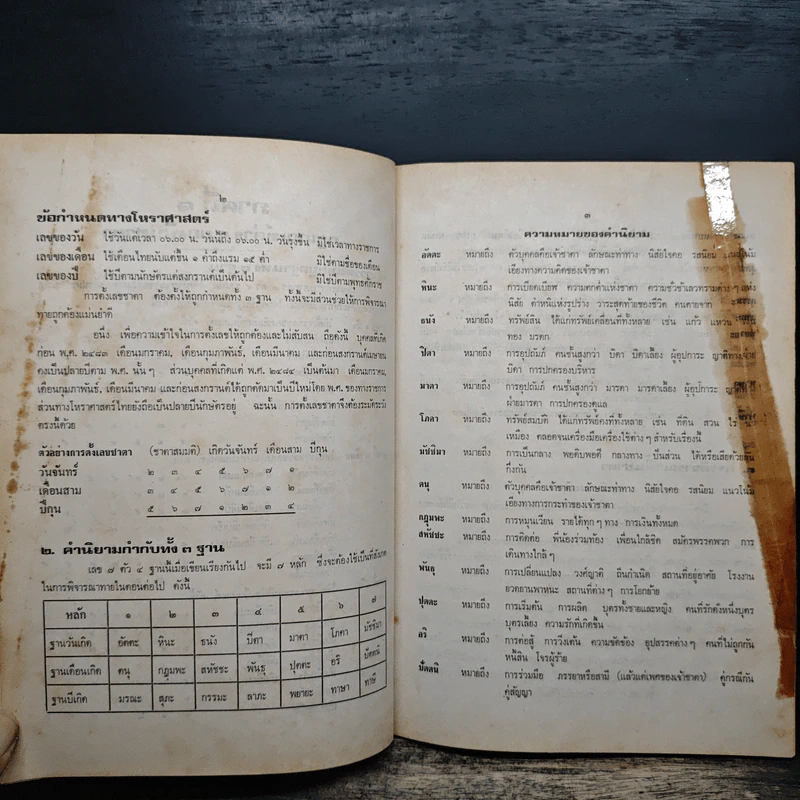 ๒
ข้อกำหนดทางโหราศาสตร์
เลขของวัน ใช้วันแต่เวลา ๐๖.๐๐ น. วันนี้ถึง ๐๖.๐๐ น. วันรุ่งขึ้น มิใช่เวลาทางราชการ
เลขของเดือน ใช้เดือนไทยนับแต่ขึ้น ๑ ค่ำถึงแรม ๑๕ ค่ำ มิใช่ตามชื่อของเดือน
เลขของปี ใช้ปีตามนักษัตรแต่สงกรานต์เป็นต้นไป มิใช่ปีตามพุทธศักราช
การตั้งเลขชาตา ต้องตั้งให้ถูกกำหนดทั้ง ๓ ฐาน ทั้งนี้จะมีส่วนช่วยให้การพิจารณา
ทายถูกต้องแม่นยำดี
อนึ่ง เพื่อความเข้าใจในการตั้งเลขให้ถูกต้องและไม่สับสน ถือดังนี้ บุคคลที่เกิด
ก่อน พ.ศ. ๒๔๘๓ เดือนมกราคม, เดือนกุมภาพันธ์, เดือนมีนาคม และก่อนสงกรานต์เมษายน
คงเป็นปลายปีตาม พ.ศ. นั้น ๆ ส่วนบุคคลที่เกิดแต่ พ.ศ. ๒๔๘๔ เป็นต้นมา เดือนมกราคม,
เดือนกุมภาพันธ์, เดือนมีนาคม และก่อนสงกรานต์ได้ถูกตัดมาเป็นปีใหม่โดย พ.ศ. ของทางราชการ
ส่วนทางโหราศาสตร์ไทยยังถือเป็นปลายปีนักษัตรอยู่ ฉะนั้น การตั้งเลขชาตาจึงต้องระมัดระวัง
ตรงนี้ด้วย
ตัวอย่างการตั้งเลขชาตา (ชาตาสมมติ) เกิดวันจันทร์ เดือนสาม ปีกุน
วันจันทร์ ๒ ๓ ๔ ๕ ๖ ๗ ๑
เดือนสาม ๓ ๔ ๕ ๖ ๗ ๑ ๒
ปีกุน ๕ ๖ ๗ ๑ ๒ ๓ ๔
๒. คำนิยามกำกับทั้ง ๓ ฐาน
เลข ๗ ตัว ๔ ฐานนี้เมื่อเขียนเรียงกันไป จะมี ๗ หลัก ซึ่งจะต้องใช้เป็นที่สังเกต
ในการพิจารณาทายในตอนต่อไป ดังนี้
หลัก ๑ ๒ ๓ ๔ ๕ ๖ ๗
ฐานวันเกิด อัตตะ หินะ ธนัง ปิตา มาตา โภคา มัชฌิมา
ฐานเดือนเกิด ตนุ กฎุมพะ สหัชชะ พันธุ ปุตตะ อริ ปัตตนิ
ฐานปีเกิด มรณะ สุภะ กรรมะ ลาภะ พยายะ ทาษา ทาษี
๓
ความหมายของคำนิยาม
อัตตะ หมายถึง ตัวบุคคลคือเจ้าชาตา ลักษณะท่าทาง นิสัยใจคอ รสนิยม แนวโน้ม
เอียงทางความคิดของเจ้าชาตา
หินะ หมายถึง การเบียดเบียฬ ความตกต่ำแห่งชาตา ความชั่วช้าเลวทรามต่าง ๆ แห่ง
นิสัย ตำหนิแห่งรูปร่าง วาระสุดท้ายของชีวิต คนตายจาก
ธนัง หมายถึง ทรัพย์สิน ได้แก่ทรัพย์เคลื่อนที่ทั้งหลาย เช่น แก้ว แหวน เงิน
ทอง มรดก
ปิตา หมายถึง การอุปถัมภ์ คนชั้นสูงกว่า บิดา บิดาเลี้ยง ผู้อุปการะ ญาติทางฝ่าย
บิดา การปกครองบริหาร
มาตา หมายถึง การอุปถัมภ์ คนชั้นสูงกว่า มารดา มารดาเลี้ยง ผู้อุปการะ ญาติทาง
ฝ่ายมารดา การปกครองดูแล
โภคา หมายถึง ทรัพย์สมบัติ ได้แก่ทรัพย์คงที่ทั้งหลาย เช่น ที่ดิน สวน ไร่ นา
เหมือง ตลอดจนเครื่องมือเครื่องใช้ต่าง ๆ สำหรับเรื่องนี้
มัชฌิมา หมายถึง การเป็นกลาง พอดิบพอดี กลางทาง ปันส่วน ได้หรือเสียด้วยกัน
กึ่งกัน
ตนุ หมายถึง ตัวบุคคลคือเจ้าชาตา ลักษณะท่าทาง นิสัยใจคอ รสนิยม แนวโน้ม
เอียงทางการกระทำของเจ้าชาตา
กฎุมพะ หมายถึง การหมุนเวียน รายได้ทุก ๆ ทาง การเงินทั้งหมด
สหัชชะ หมายถึง การติดต่อ พี่น้องร่วมท้อง เพื่อนใกล้ชิด สมัครพรรคพวก การ
เดินทางใกล้ ๆ
พันธุ หมายถึง การเปลี่ยนแปลง วงศ์ญาติ ถิ่นกำเนิด สถานที่อยู่อาศัย โรงงาน
ยวดยานพาหนะ สถานที่ต่าง ๆ การโยกย้าย
ปุตตะ หมายถึง การเริ่มต้น การผลิต บุตรทั้งชายและหญิง คนที่รักดังหนึ่งบุตร
บุตรเลี้ยง ความรักที่เกิดขึ้น
อริ หมายถึง การต่อสู้ การวิ่งเต้น ความขัดข้อง อุปสรรคต่าง ๆ คนที่ไม่ถูกกัน
หนี้สิน โจรผู้ร้าย
ปัตตนิ หมายถึง การร่วมมือ ภรรยาหรือสามี (แล้วแต่เพศของเจ้าชาตา) คู่กรณีกัน
คู่สัญญา